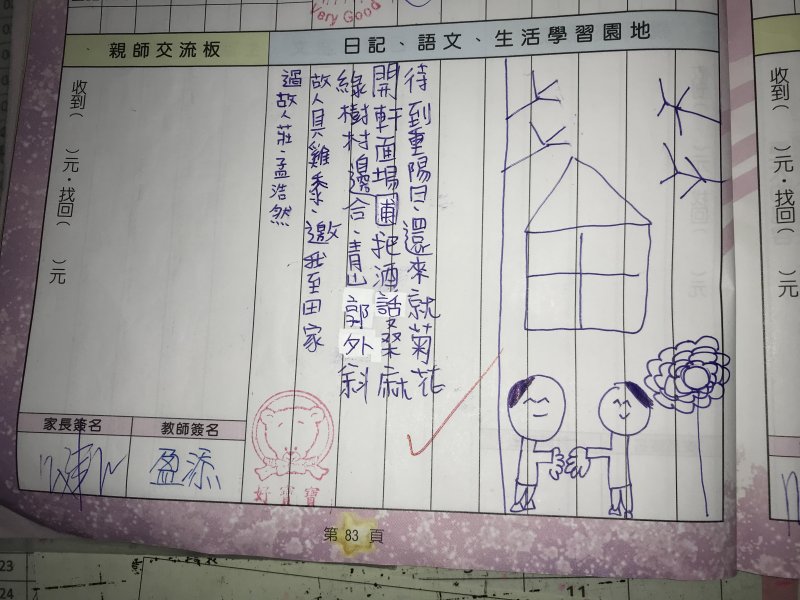 Very Good
親師交流板
日記、語文、生活學習園地
收到( )元,找回( )元
過故人莊·孟浩然
故人具雞黍、邀我至田家
綠樹村邊合、青山郭外斜
開軒面場圃把酒話桑麻
待到重陽日、還來就菊花
家長簽名
教師簽名
盈添
好寶寶
第 83 頁
收到( )元,找回( )元
23
24
11